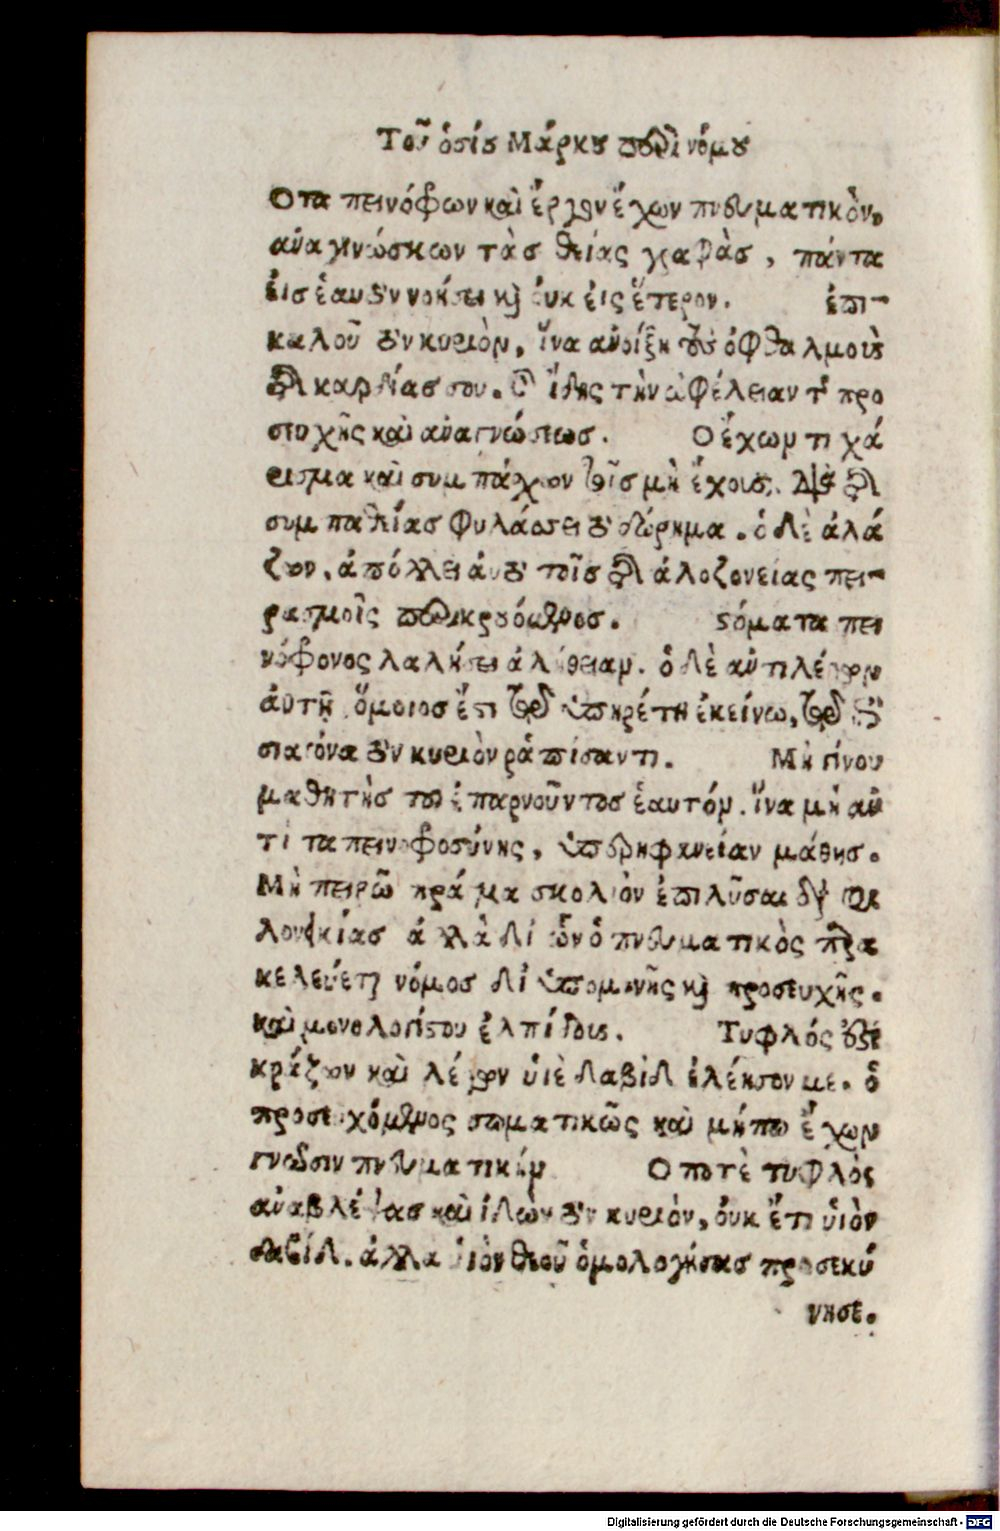 Τοῦ ὁσίου Μάρκου περὶ νόμου
Ο ταπεινόφρων καὶ ἔργον ἔχων πνευματικὸν,
ἀναγινώσκων τὰς θείας γραφὰς, πάντα
εἰς ἑαυτὸν νοήσει καὶ ουκ εἰς ἕτερον. ἐπι-
καλοῦ τὸν κυριὸν, ἵνα ἀνοίξη τοὺς ὀφθαλμοὺς
τῆς καρδίας σου. καὶ ἴδης τὴν ὠφέλειαν τῆς προ
σευχῆς καὶ ἀναγνώσεως. Ο ἔχων τι χά
ρισμα καὶ συμπάσχων τοῖς μὴ ἔχουσι. διὰ τῆς
συμπαθείας φυλάσσει τὸ δώρημα. ὁ δὲ ἀλά
ζων, ἀπόλλει ἀυτὸ τοῖς τῆς ἀλοζονειας πει-
ρασμοῖς περικρουόμενος. στόματα πει
νόφρονος λαλήσει ἀλήθειαν. ὁ δὲ ἀντιλέγων
ἀυτῆ ὅμοιος ἔστι τῷ ὑπηρέτη ἐκείνω, τῷ
σιαγόνα τὸν κυριὸν ῥάπίσαντι. Μὴ γίνου
μαθητὴς τοῦ ἐπαινοῦντος ἑαυτόν. ἵνα μὴ ἀν
τὶ ταπεινοφροσύνης, ὑπερηφανείαν μάθης.
Μὴ πειρῶ πράγμα σκολιὸν ἐπιλῦσαι διὰ φι
λονεικίας ἀλλὰ δι ὧν ὁ πνευματικὸς παρα
κελεύεται νόμος δι ὑπομονῆς καὶ προσευχῆς.
καὶ μονολογίστου ἐλπίδους. Τυφλός ἐστι
κράζων καὶ λέγων ὑιὲ δαβὶδ ἐλέησον με. ὁ
προσευχόμενος σωματικῶς καὶ μήπω ἔχων
γνῶσιν πνευματικήν Ο ποτὲ τυφλὸς
ἀναβλέψας καὶ ἰδὼν τὸν κυριὸν, ὀυκ ἔτι ὑιὸν
δαβίδ. ἀλλα ὑιὸν θεοῦ ὁμολογήσας προσεκύ
νησε.
Digitalisierung gefördert durch die Deutsche Forschungsgemeinschaft - DFG